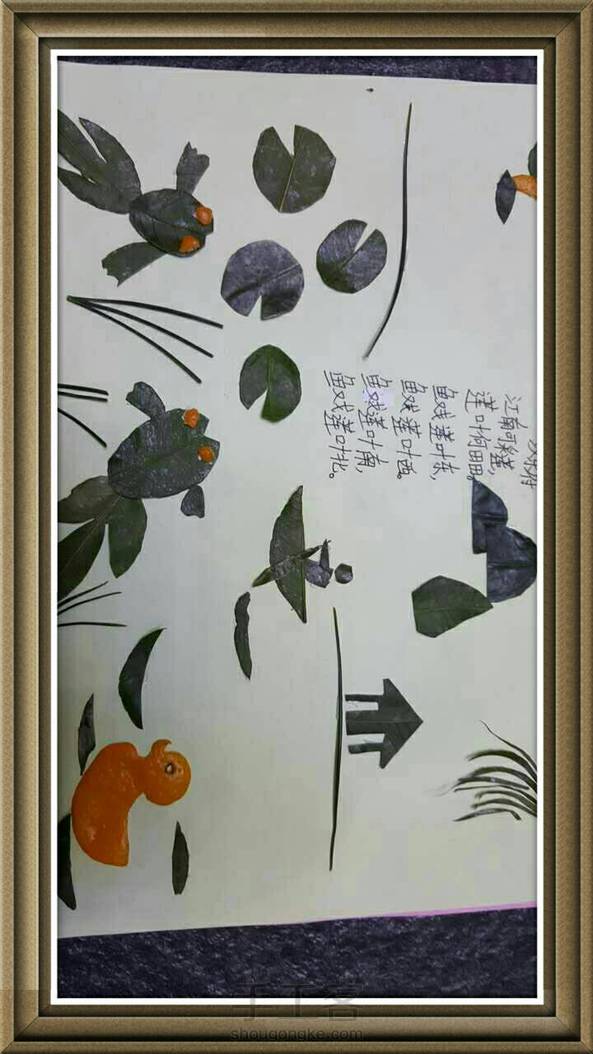 江南可采莲，
莲叶何田田。
鱼戏莲叶东，
鱼戏莲叶西。
鱼戏莲叶南，
鱼戏莲叶北。
手工客
shougongke.com